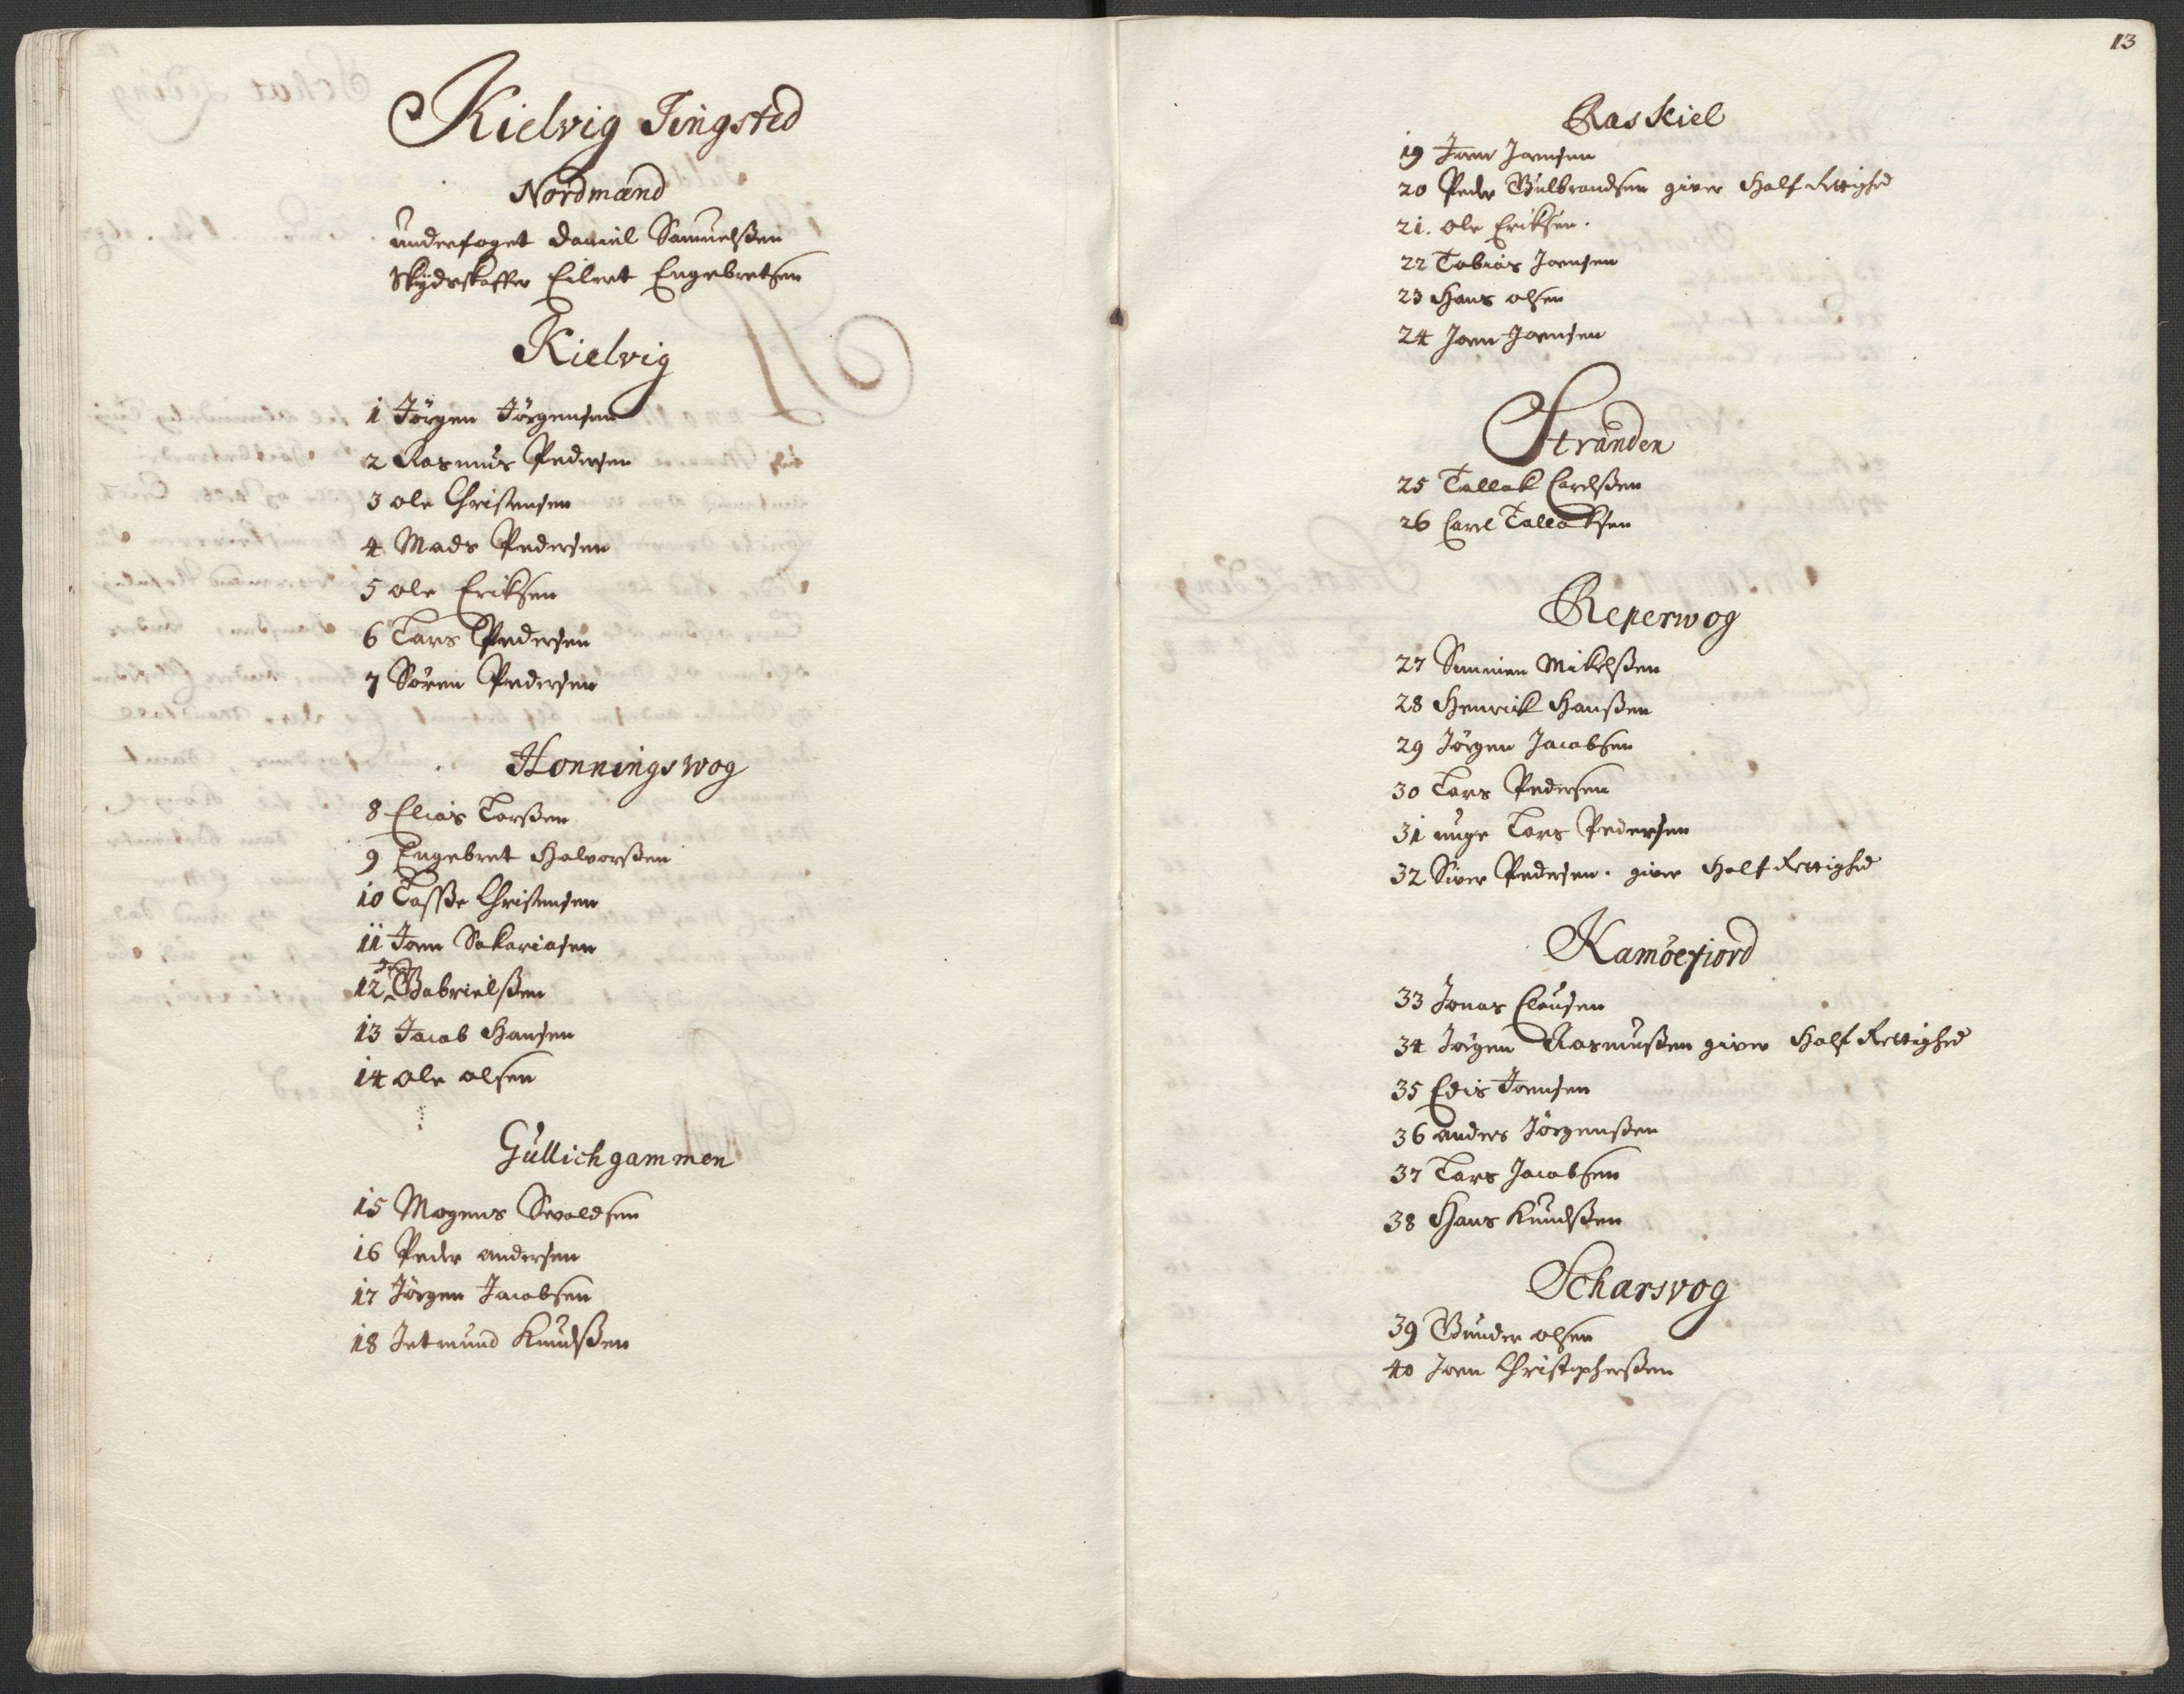 Kielvig Tingsted
Nordmænd
underfoget Daniel Samuelßen
Skydsskaffer Eilert Engebretsen
Kielvig
1 Jörgen Jörgensen
2 Rasmus Pedersen
3 ole Christensen
4 Mads Pedersen
5 ole Eriksen
6 Lars Pedersen
7 Sören Pedersen
Honningswog
8 Elias Larßen
9 Engebret Halvorßen
10 Lasße Christensen
11 Joen Sakariasen
12 Gabrielßen
13 Jacob Hansen
14 ole olsen
Gullichgammen
15 Mogens Sevaldsen
16 Peder andersen
17 Jörgen Jacobsen
18 Jetmund Knudßen
13
Raskiel
19 Joen Joensen
20 Peder Gulbrandsen giver Half Rettighed
21. ole Eriksen.
22 Tobias Joensen
23 Hans olsen
24 Joen Joensen
Stranden
25 Tallak Carelßen
26 Carel Tallaksen
Reperwog
27 Simmen Mikelßen
28 Henrick Hanßen
29 Jörgen Jacobsen
30 Lars Pedersen
31 unge Lars Pedersen
32 Siver Pedersen. giver Half Rettighed
Kamöefiord
33 Jonas Clausen
34 Jörgen Rasmußen giver Half Rettighed
35 Edis Joensen
36 anders Jörgenßen
37 Lars Jacobsen
38 Hans Knudßen
Scharsvog
39 Gunder olsen
40 Joen Christopherßen